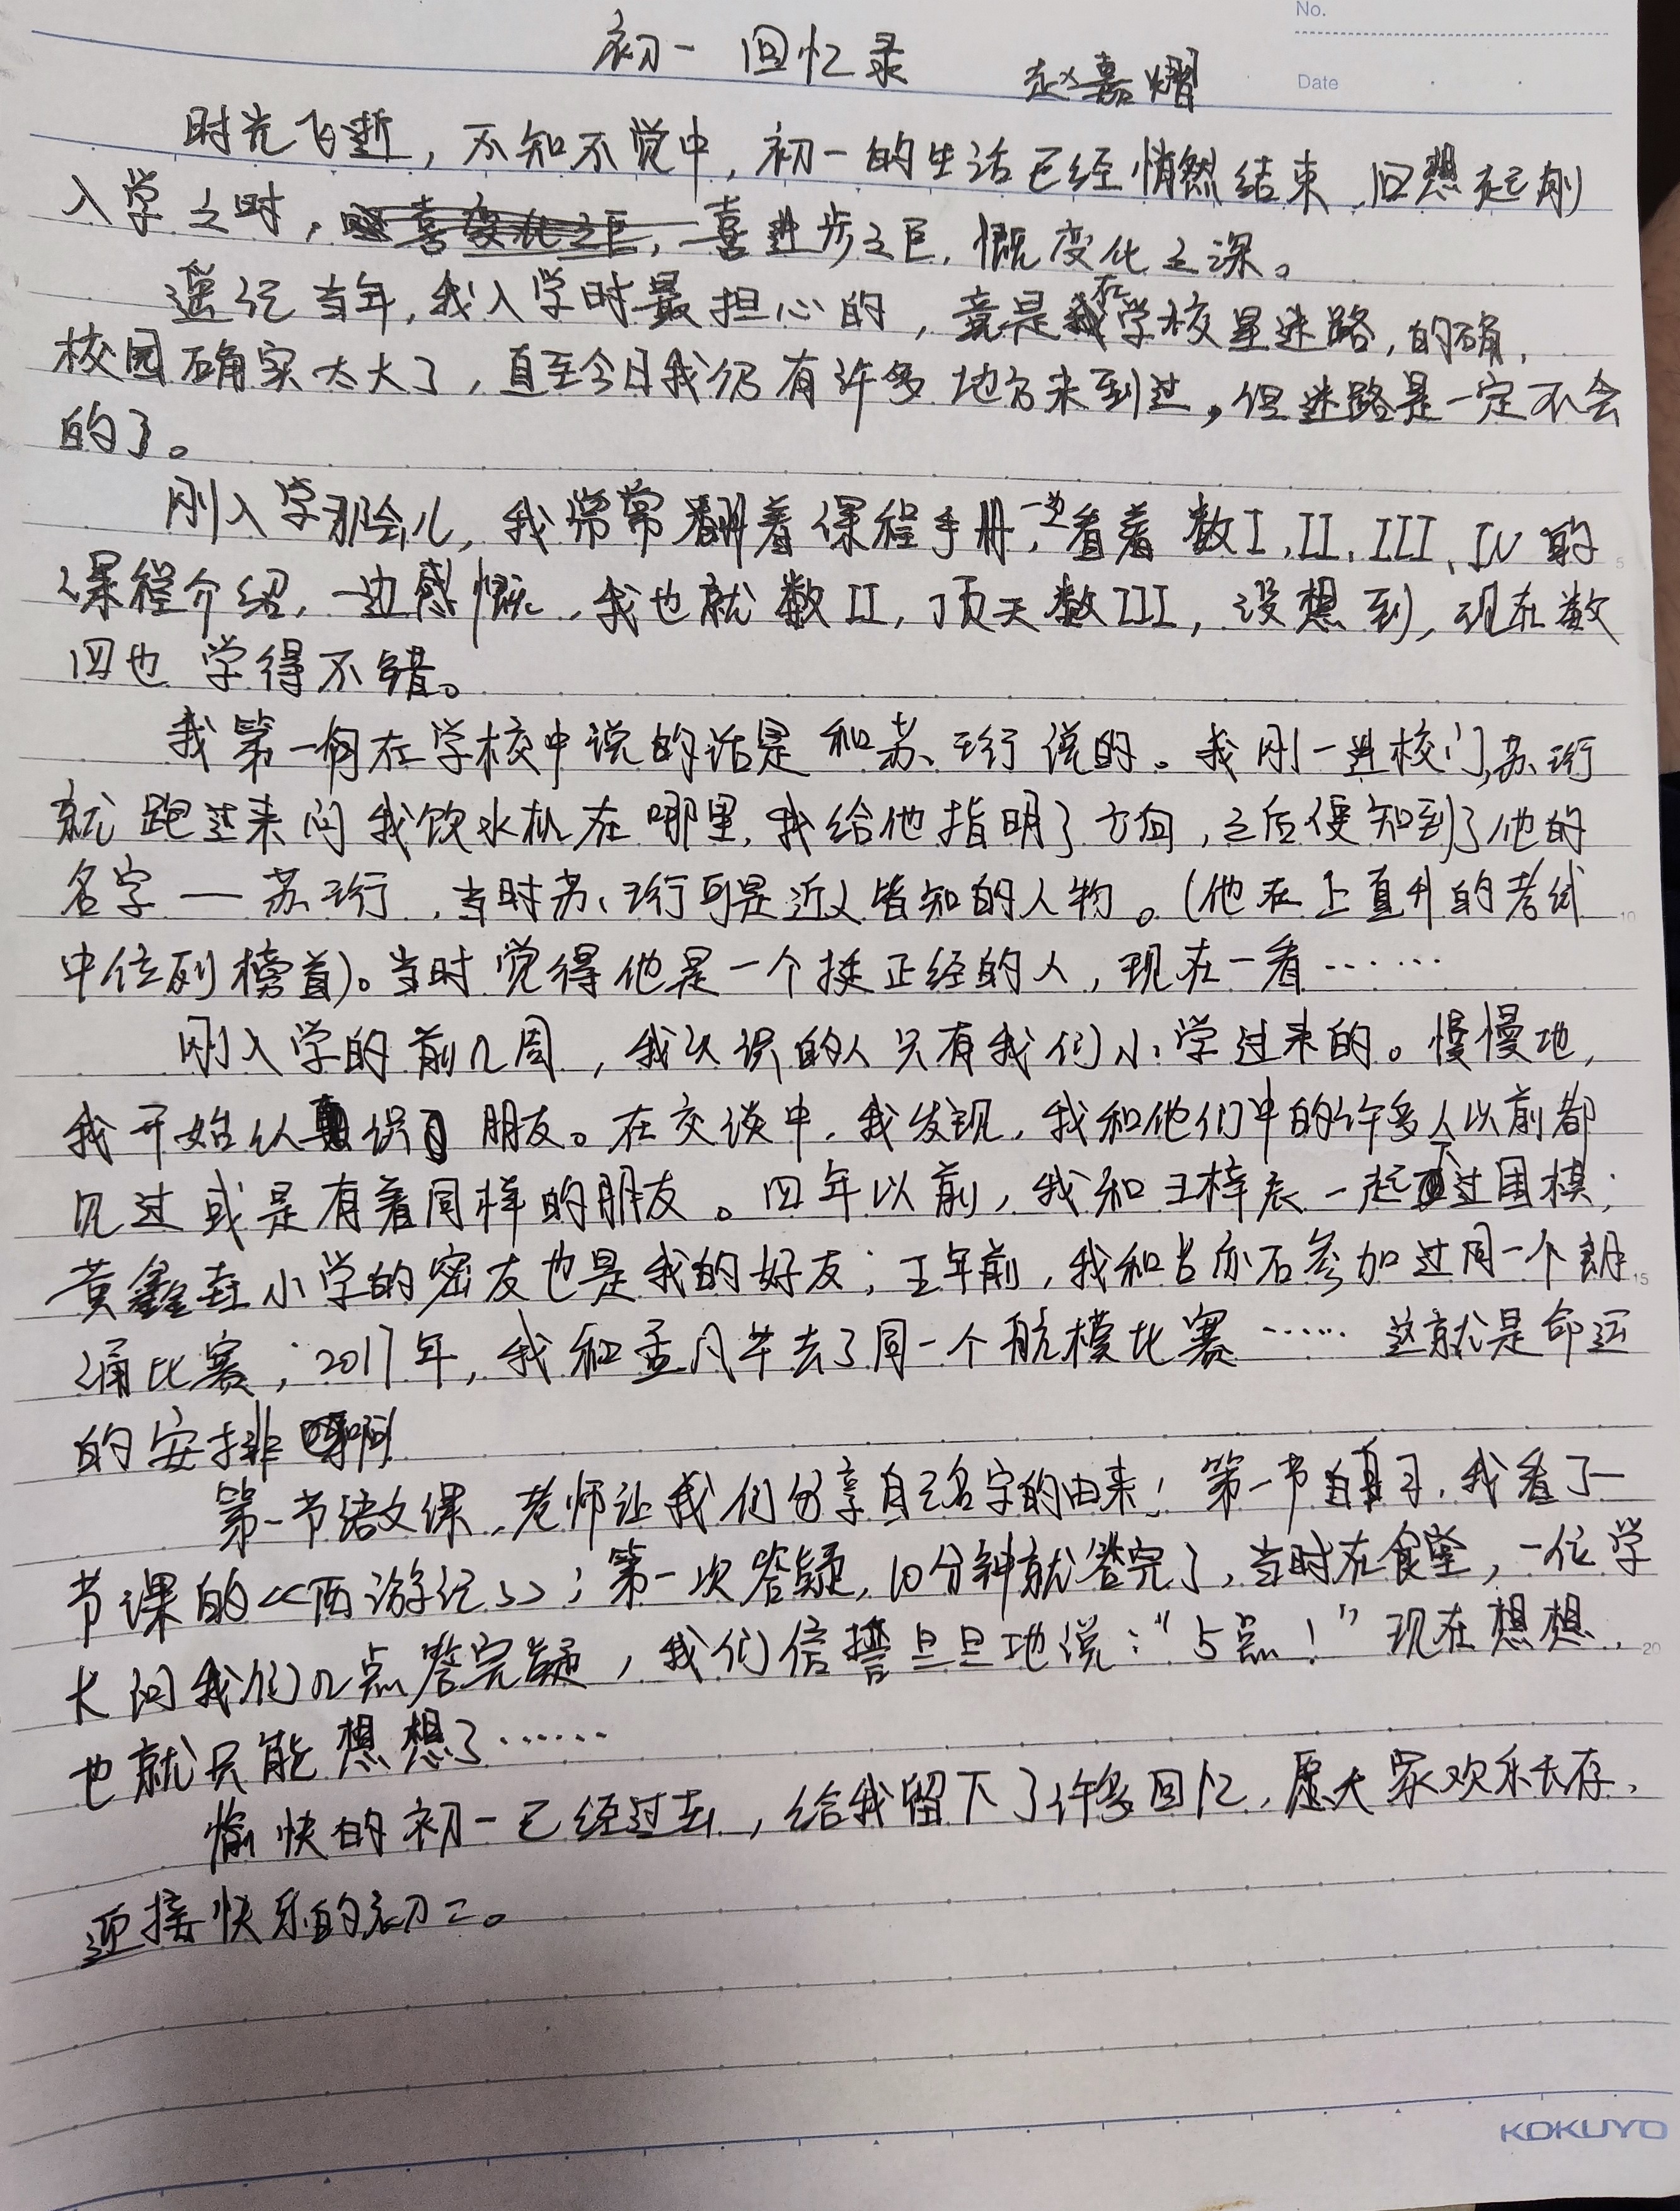 No.
Date
初一回忆录 赵嘉熠
时光飞逝，不知不觉中，初一的生活已经悄然结束，回想起刚
入学之时，喜进步之巨，慨变化之深。
遥记当年，我入学时最担心的，竟是在学校里迷路，的确，
校园确实太大了，直至今日我仍有许多地方未到过，但迷路是一定不会
的了。
刚入学那会儿，我常常翻着课程手册，一边看着数I，II，III，IV的
课程介绍，一边感慨，我也就数II，顶天数III，没想到，现在数
四也学得不错。
我第一句在学校中说的话是和苏珩说的。我刚一进校门，苏珩
就跑过来问我饮水机在哪里，我给他指明了方向，之后便知到了他的
名字—苏珩，当时苏珩可是近人皆知的人物。（他在上直升的考试
中位列榜首）。当时觉得他是一个挺正经的人，现在一看……
刚入学的前几周，我认识的人只有我们小学过来的。慢慢地，
我开始认识朋友。在交谈中，我发现，我和他们中的许多人以前都
见过或是有着同样的朋友。四年以前，我和王梓辰一起下过围棋；
黄鑫垚小学的密友也是我的好友；五年前，我和吕亦石参加过同一个朗
诵比赛；2017年，我和孟凡芊去了同一个航模比赛……这就是命运
的安排啊！
第一节语文课，老师让我们分享自己名字的由来；第一节自习，我看了一
节课的《西游记》；第一次答疑，10分钟就答完了，当时在食堂，一位学
长问我们几点答完疑，我们信誓旦旦地说：“5点！”现在想想，
也就只能想想了……
愉快的初一已经过去，给我留下了许多回忆，愿大家欢乐长存，
迎接快乐的初二。
5
10
15
20
KOKUYO